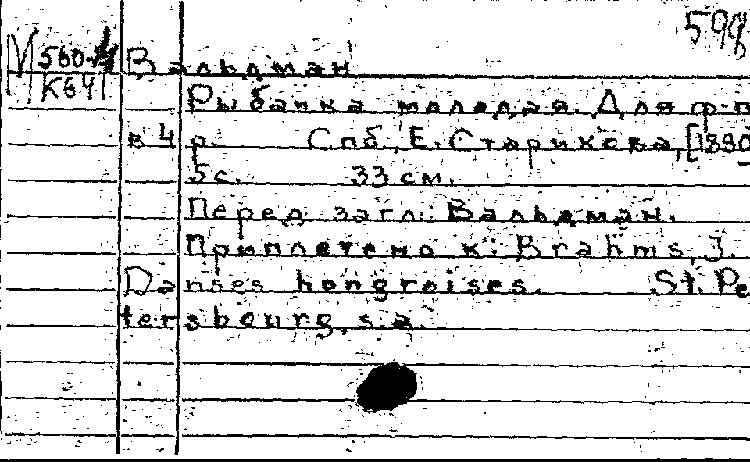 598
М 560-4
К641
Вальдман
Рыбачка молодая. Для ф-п
в 4 р. Спб, Е. Старикова, [1890
5с. 33 см.
Перед загл.: Вальдман.
Приплетено к: Brahms, J.
Danses hongroises. St. Pe-
tersbourg, s.a.